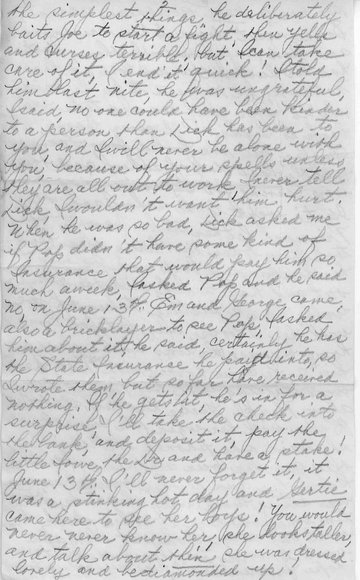 the simplest things. he deliberately
baits me to start a fight, then yells
and curses terrible, but I can take
care of it, I end it quick! I told
him last nite, he was ungrateful,
I said, no one could have been kinder
to a person than Dick has been to
you, and I will never be alone with
you, because of your spells unless
they are all out to work. I never tell
Dick, I wouldn't want him hurt.
When he was so bad, Dick asked me
if Pop didn't have some kind of
Insurance that would pay him so
much a week, I asked Pop and he said
no, on June 13th. Em and George came,
also a bricklayer to see Pop, I asked
him about it, he said, certainly he has
the State Insurance he paid into, so
I wrote them but so far have received
nothing. If he gets it he's in for a
surprise, I'll take the check into
the bank, and deposit it, pay the
little I owe, the Dr and have a stake!
June 13th I'll never forget it, it
was a stinking hot day and Gertie
came here to see her boys! You would
never never know her, she looks taller,
and talk about thin, she was dressed
lovely and bediamonded up!